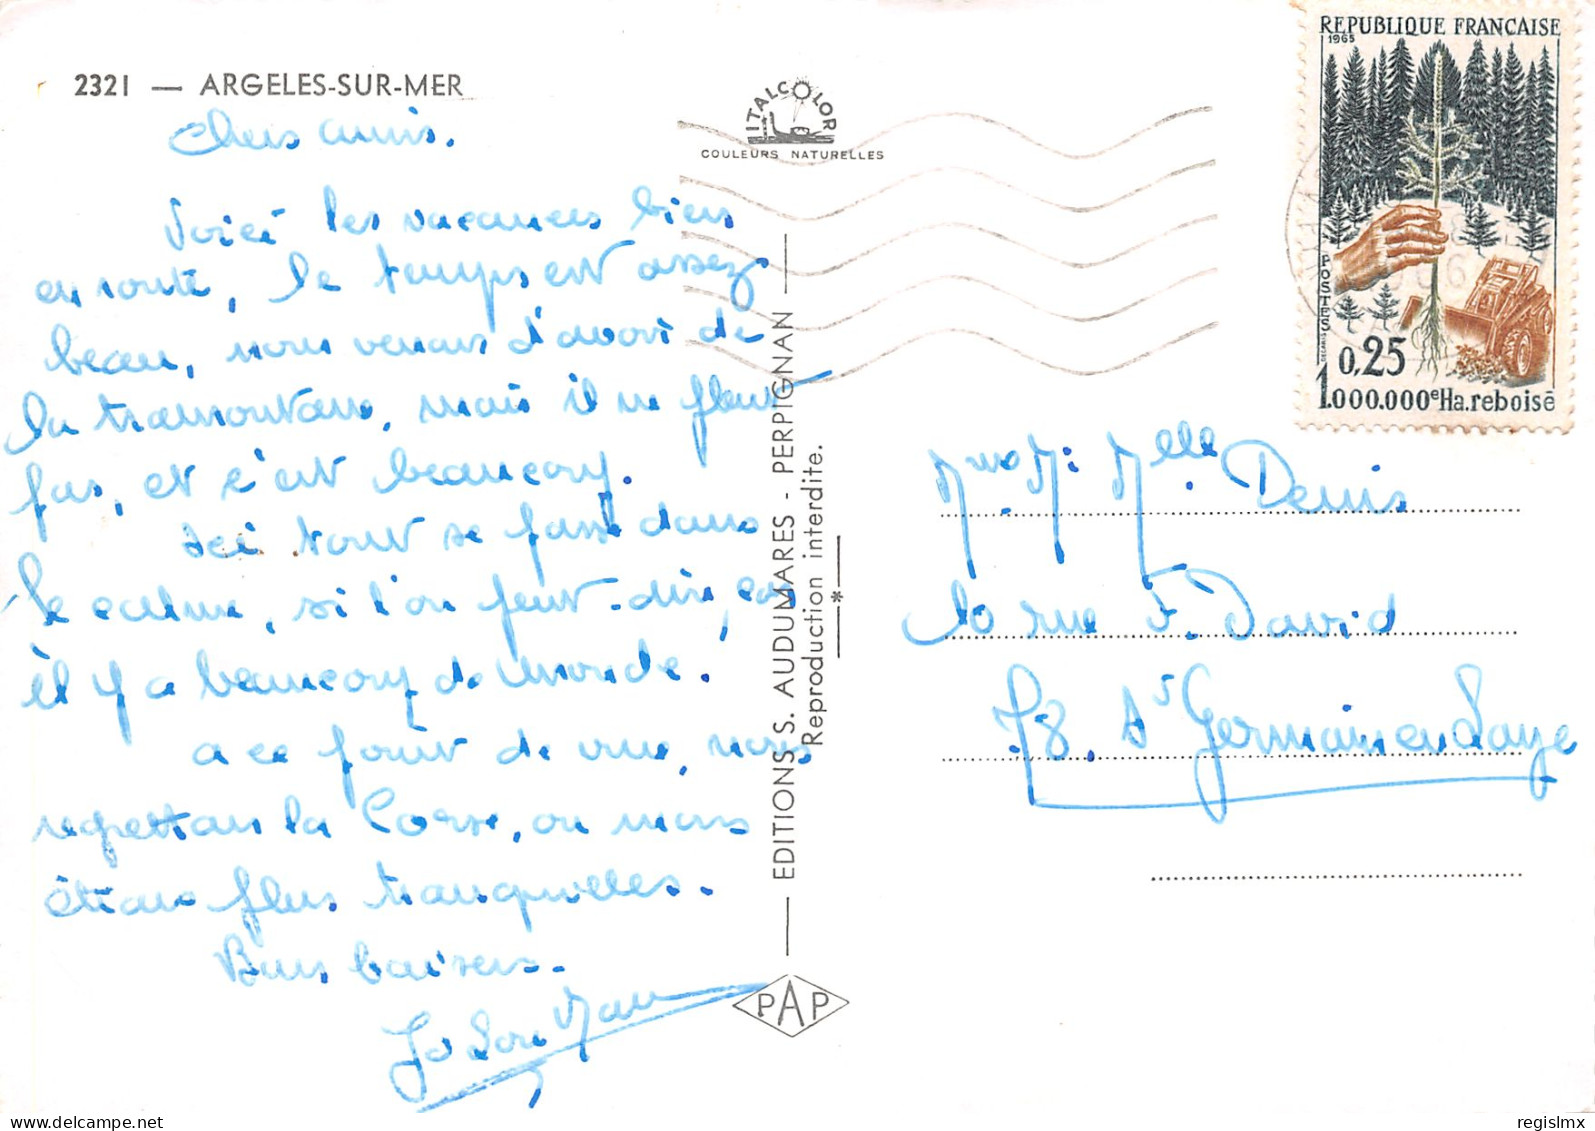 2321 — ARGELES-SUR-MER
Chers amis.
Voici les vacances bien
en route, le temps est assez
beau, nous venons d'avoir de
la tramontane, mais il ne pleut
pas, et c'est beaucoup.
Ici tout se passe dans
le calme, si l'on peut-dire, car
il y a beaucoup de monde.
a ce point de vue, nous
regrettons la Corse, ou nous
étions plus tranquilles.
Bons baisers.
ITALCOLOR
COULEURS NATURELLES
EDITIONS S. AUDUMARES - PERPIGNAN
Reproduction interdite.
*
PAP
REPUBLIQUE FRANÇAISE
1965
POSTES
0,25
1.000.000e Ha.reboisé
Mme M. Melle Denis
10 rue F. David
78. St Germain en Laye
delcampe.net
regislmx